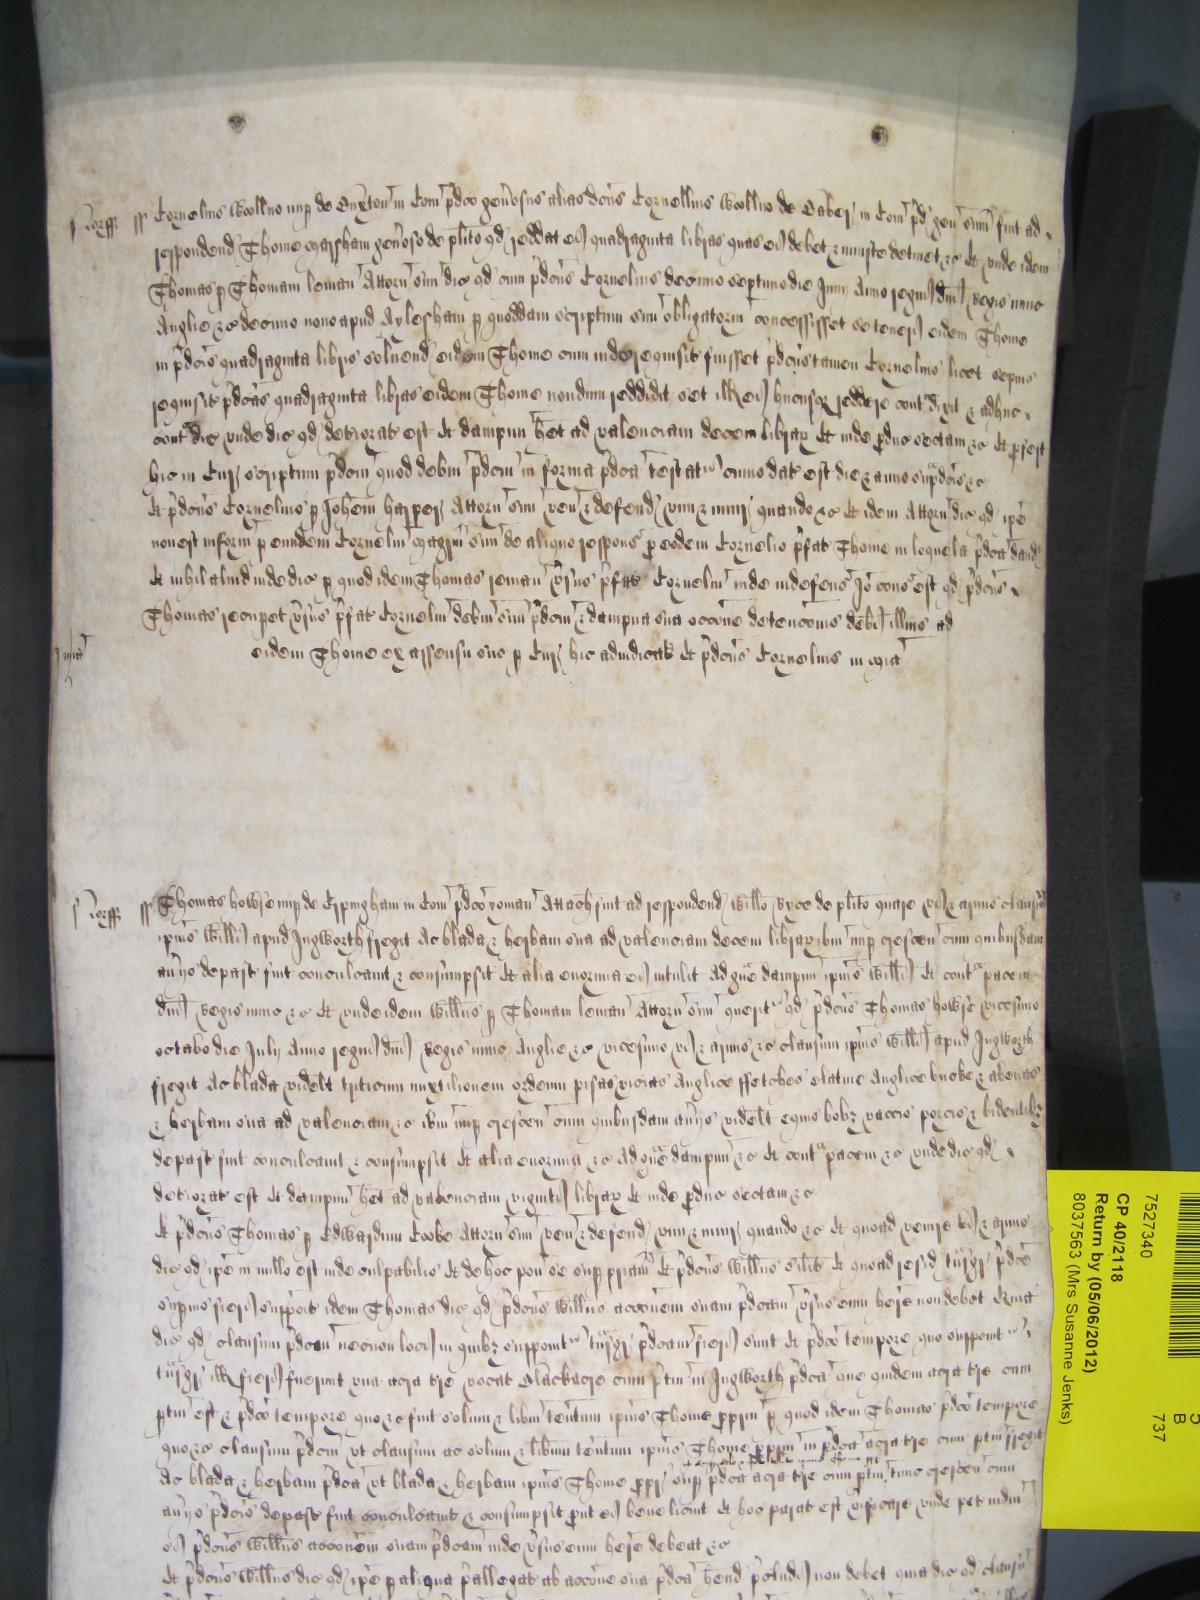 Norff ss Cornelius Woollno nup de Buxton in Com pdco genosus alias dcus Cornellius Woollno de in Com pd gen sum fuit ad
respondend Thome Marsham genoso de plito qd reddat ei quadraginta libras quas ei debet & iniuste detinet &c Et unde idem
Thomas p Thomam leman Attorn suu dic qd cum pdcus Cornelius decimo septimo die Junii Anno regni dni Regis nunc
Anglie &c decimo nono apud Aylesham p quoddam scriptum suu obligatoriu concessisset se teneri eidem Thome
in pdcis quadraginta libris solvend eidem Thome cum inde requisit fuisset pdcus tamen Cornelius licet sepius
requisit pdcas quadraginta libras eidem Thome nondum reddidit set ill ei hucusq reddere contdixit & adhuc
contdic unde dic qd deteriorat est Et dampnu het ad valenciam decem librar Et inde pduc sectam &c Et pfert
hic in Cur scriptum pdcm quod debm pdcm in forma pdca testat cuius dat est die & anno supdcis &c
Et pdcus Cornelius p Johem harper Attorn suu ven & defend vim & iniur quando &c Et idem Attorn dic qd ipe
non est inform p eundem Corneliu magrm suu de aliquo respons p eodem Cornelio pfat Thome in loquela pdca dand
Et nihil aliud inde dic p quod idem Thomas reman vsus pfat Corneliu inde indefens Io cons est qd pdcus
Thomas recupet vsus pfat Corneliu debm suu pdcm & dampna sua occone detencionis debi illius ad
eidem Thome ex assensu suo p Cur hic adiudicat Et pdcus Cornelius in mia
mia
Norff ss Thomas howse nup de Erpingham in Com pdco yoman Attach fuit ad respondend Willo Ryce de plito quare vi & armis clausum
ipius Willi apud Ingworth fregit Ac blada & herbam sua ad valenciam decem librar ibm nup crescen cum quibusdam
aviis depast fuit conculcavit & consumpsit Et alia enormia ei intulit Ad gue dampnu ipius Willi Et cont pacem
dni Regis nunc &c Et unde idem Willus p Thomam leman Attorn suu querit qd pdcus Thomas howse vicesimo
octavo die July Anno regni dni Regis nunc Anglie &c vicesimo vi & armis &c clausum ipius Willi apud Ingworth
fregit Ac blada videlt triticum mixtilionem ordeum pisas vicias Anglice ffetches Anglice bucke & avenas
& herbam sua ad valenciam &c ibm nup crescen cum quibusdam aviis videlt equis bobz vaccis porcis & bidentibz
depast fuit conculcavit & consumpsit Et alia enormia &c Ad gue dampnu &c Et cont pacem &c unde dic qd
deteriorat est Et dampnu het ad valenciam viginti librar Et inde pduc sectam &c
Et pdcus Thomas p Edwardum Cooke Attorn suu ven & defend vim & iniur quando &c Et quoad venire vi & armis
dic qd ipe in nullo est inde culpabilis Et de hoc pon se sup priam Et pdcus Willus silit Et quoad resid tnsgr pdce
supius fieri supposit idem Thomas dic qd pdcus Willus accionem suam pdcam vsus eum here non debet Quia
dic qd clausum pdcm necnon loci in quibz supponit tnsgr pdcam fieri sunt Et pdco tempore quo supponit
tnsgr ill fieri fuerunt una acra tre vocat Blackacre cum ptin in Ingworth pdca que quidem acra tre cum
ptin est & pdco tempore quo &c fuit solum & libm tentum ipius Thome pprm p quod idem Thomas pdco tempore
quo &c clausum pdcm ut clausum ac solum & libm tentum ipius Thome pprm in pdca acra tre cum ptin fregit
Ac blada & herbam pdca ut blada & herbam ipius Thome ppr sup pdca acra tre cum ptin tunc crescen cum
aviis pdcis depast fuit conculcavit & consumpsit put ei bene licuit Et hoc parat est vificare unde pet iudm
si pdcus Willus accionem suam pdcam inde vsus eum here debeat &c
Et pdcus Willus dic qd ipe p aliqua pallegat ab accone sua pdca hend pcludi non debet quia dic qd clausu
7527340
CP 40/2118
Return by (05/06/2012)
8037563 (Mrs Susanne Jenks)
B
737